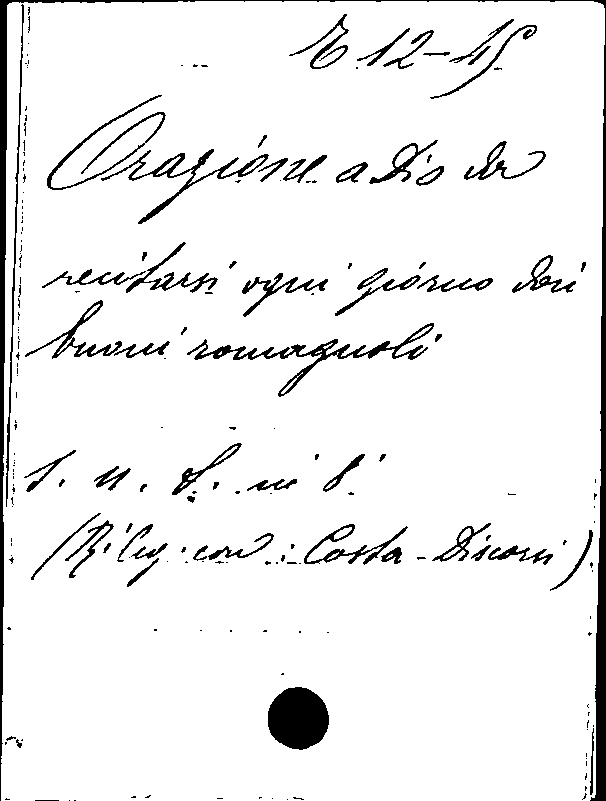 E 12-45
Orazione a Dio da
recitarsi ogni giorno dai
buoni romagnoli
s. n. t. in 8°
(Rileg. con: Costa - Discorsi)